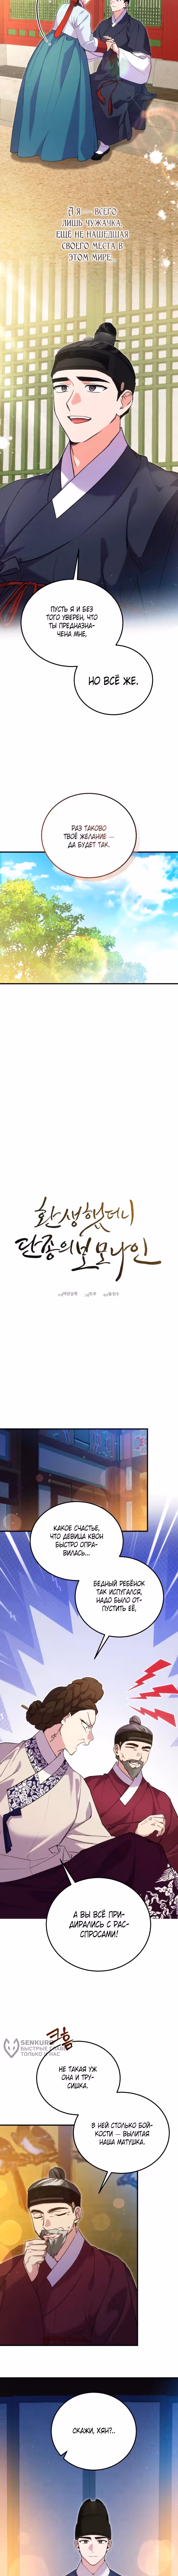 А я — всего
лишь чужачка,
ещё не нашедшая
своего места в
этом мире.
ПУСТЬ Я И БЕЗ
ТОГО УВЕРЕН, ЧТО
ТЫ ПРЕДНАЗНА-
ЧЕНА МНЕ,
НО ВСЁ ЖЕ.
РАЗ ТАКОВО
ТВОЁ ЖЕЛАНИЕ —
ДА БУДЕТ ТАК.
환생했더니
단종의 보모나인
КАКОЕ СЧАСТЬЕ,
ЧТО ДЕВИЦА КВОН
БЫСТРО ОПРА-
ВИЛАСЬ...
БЕДНЫЙ РЕБЁНОК
ТАК ИСПУГАЛСЯ,
НАДО БЫЛО ОТ-
ПУСТИТЬ ЕЁ,
А ВЫ ВСЁ ПРИ-
ДИРАЛИСЬ С РАС-
СПРОСАМИ!
SENKURO
БЫСТРЫЕ ГЛАВЫ
ТОЛЬКО У НАС
크흠
НЕ ТАКАЯ УЖ
ОНА И ТРУ-
СИШКА.
В НЕЙ СТОЛЬКО БОЙ-
КОСТИ — ВЫЛИТАЯ
НАША МАТУШКА.
СКАЖИ, ХЯН?..